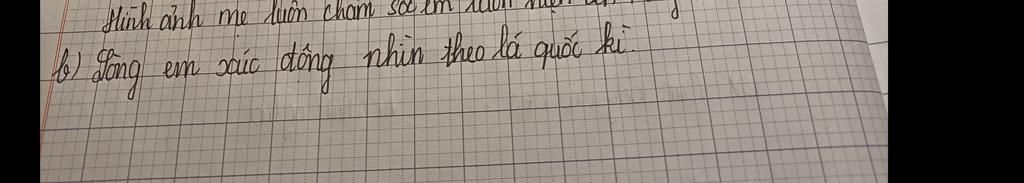 Hình ảnh mẹ luôn chăm sóc em luôn
b) Lòng em xúc động nhìn theo lá quốc kì.